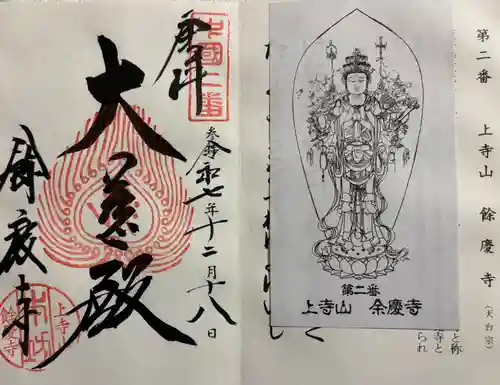 第二番　上寺山　餘慶寺（天台宗）
と称
寺と
られ
第二番
上寺山　余慶寺
中國二番
奉拝
令和七年十二月十八日
大慈殿
餘慶寺
上寺山
餘慶寺